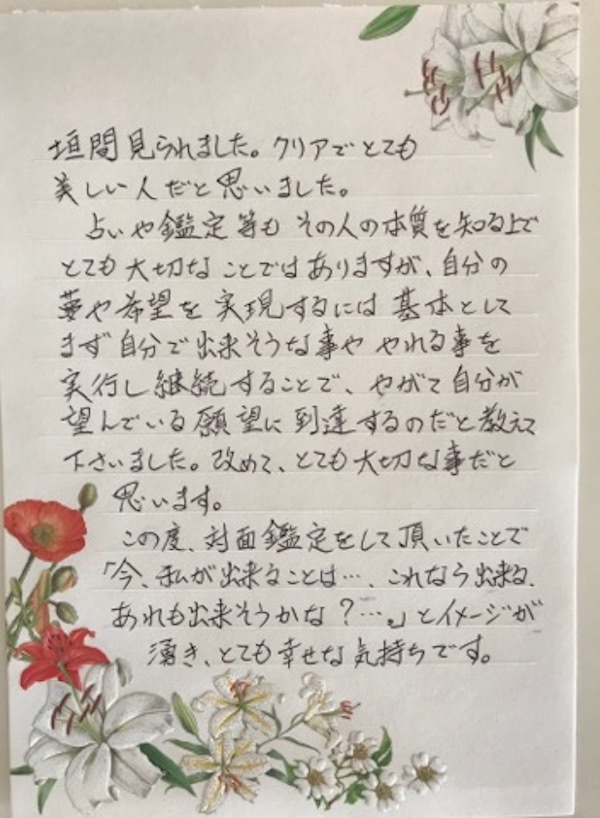 垣間見られました。クリアでとても
美しい人だと思いました。
占いや鑑定等も その人の本質を知る上で
とても大切なことではありますが、自分の
夢や希望を 実現するには 基本として
まず自分で出来そうな事や やれる事を
実行し継続することで、やがて自分が
望んでいる願望に到達するのだと教えて
下さいました。改めて、とても大切な事だと
思います。
この度、対面鑑定をして頂いたことで
「今、私が出来ることは…、これなら出来る、
あれも出来そうかな？…。」とイメージが
湧き、とても幸せな気持ちです。